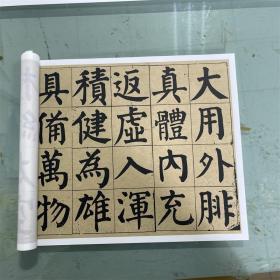 大用外腓
真體內充
返虛入渾
積健為雄
具備萬物